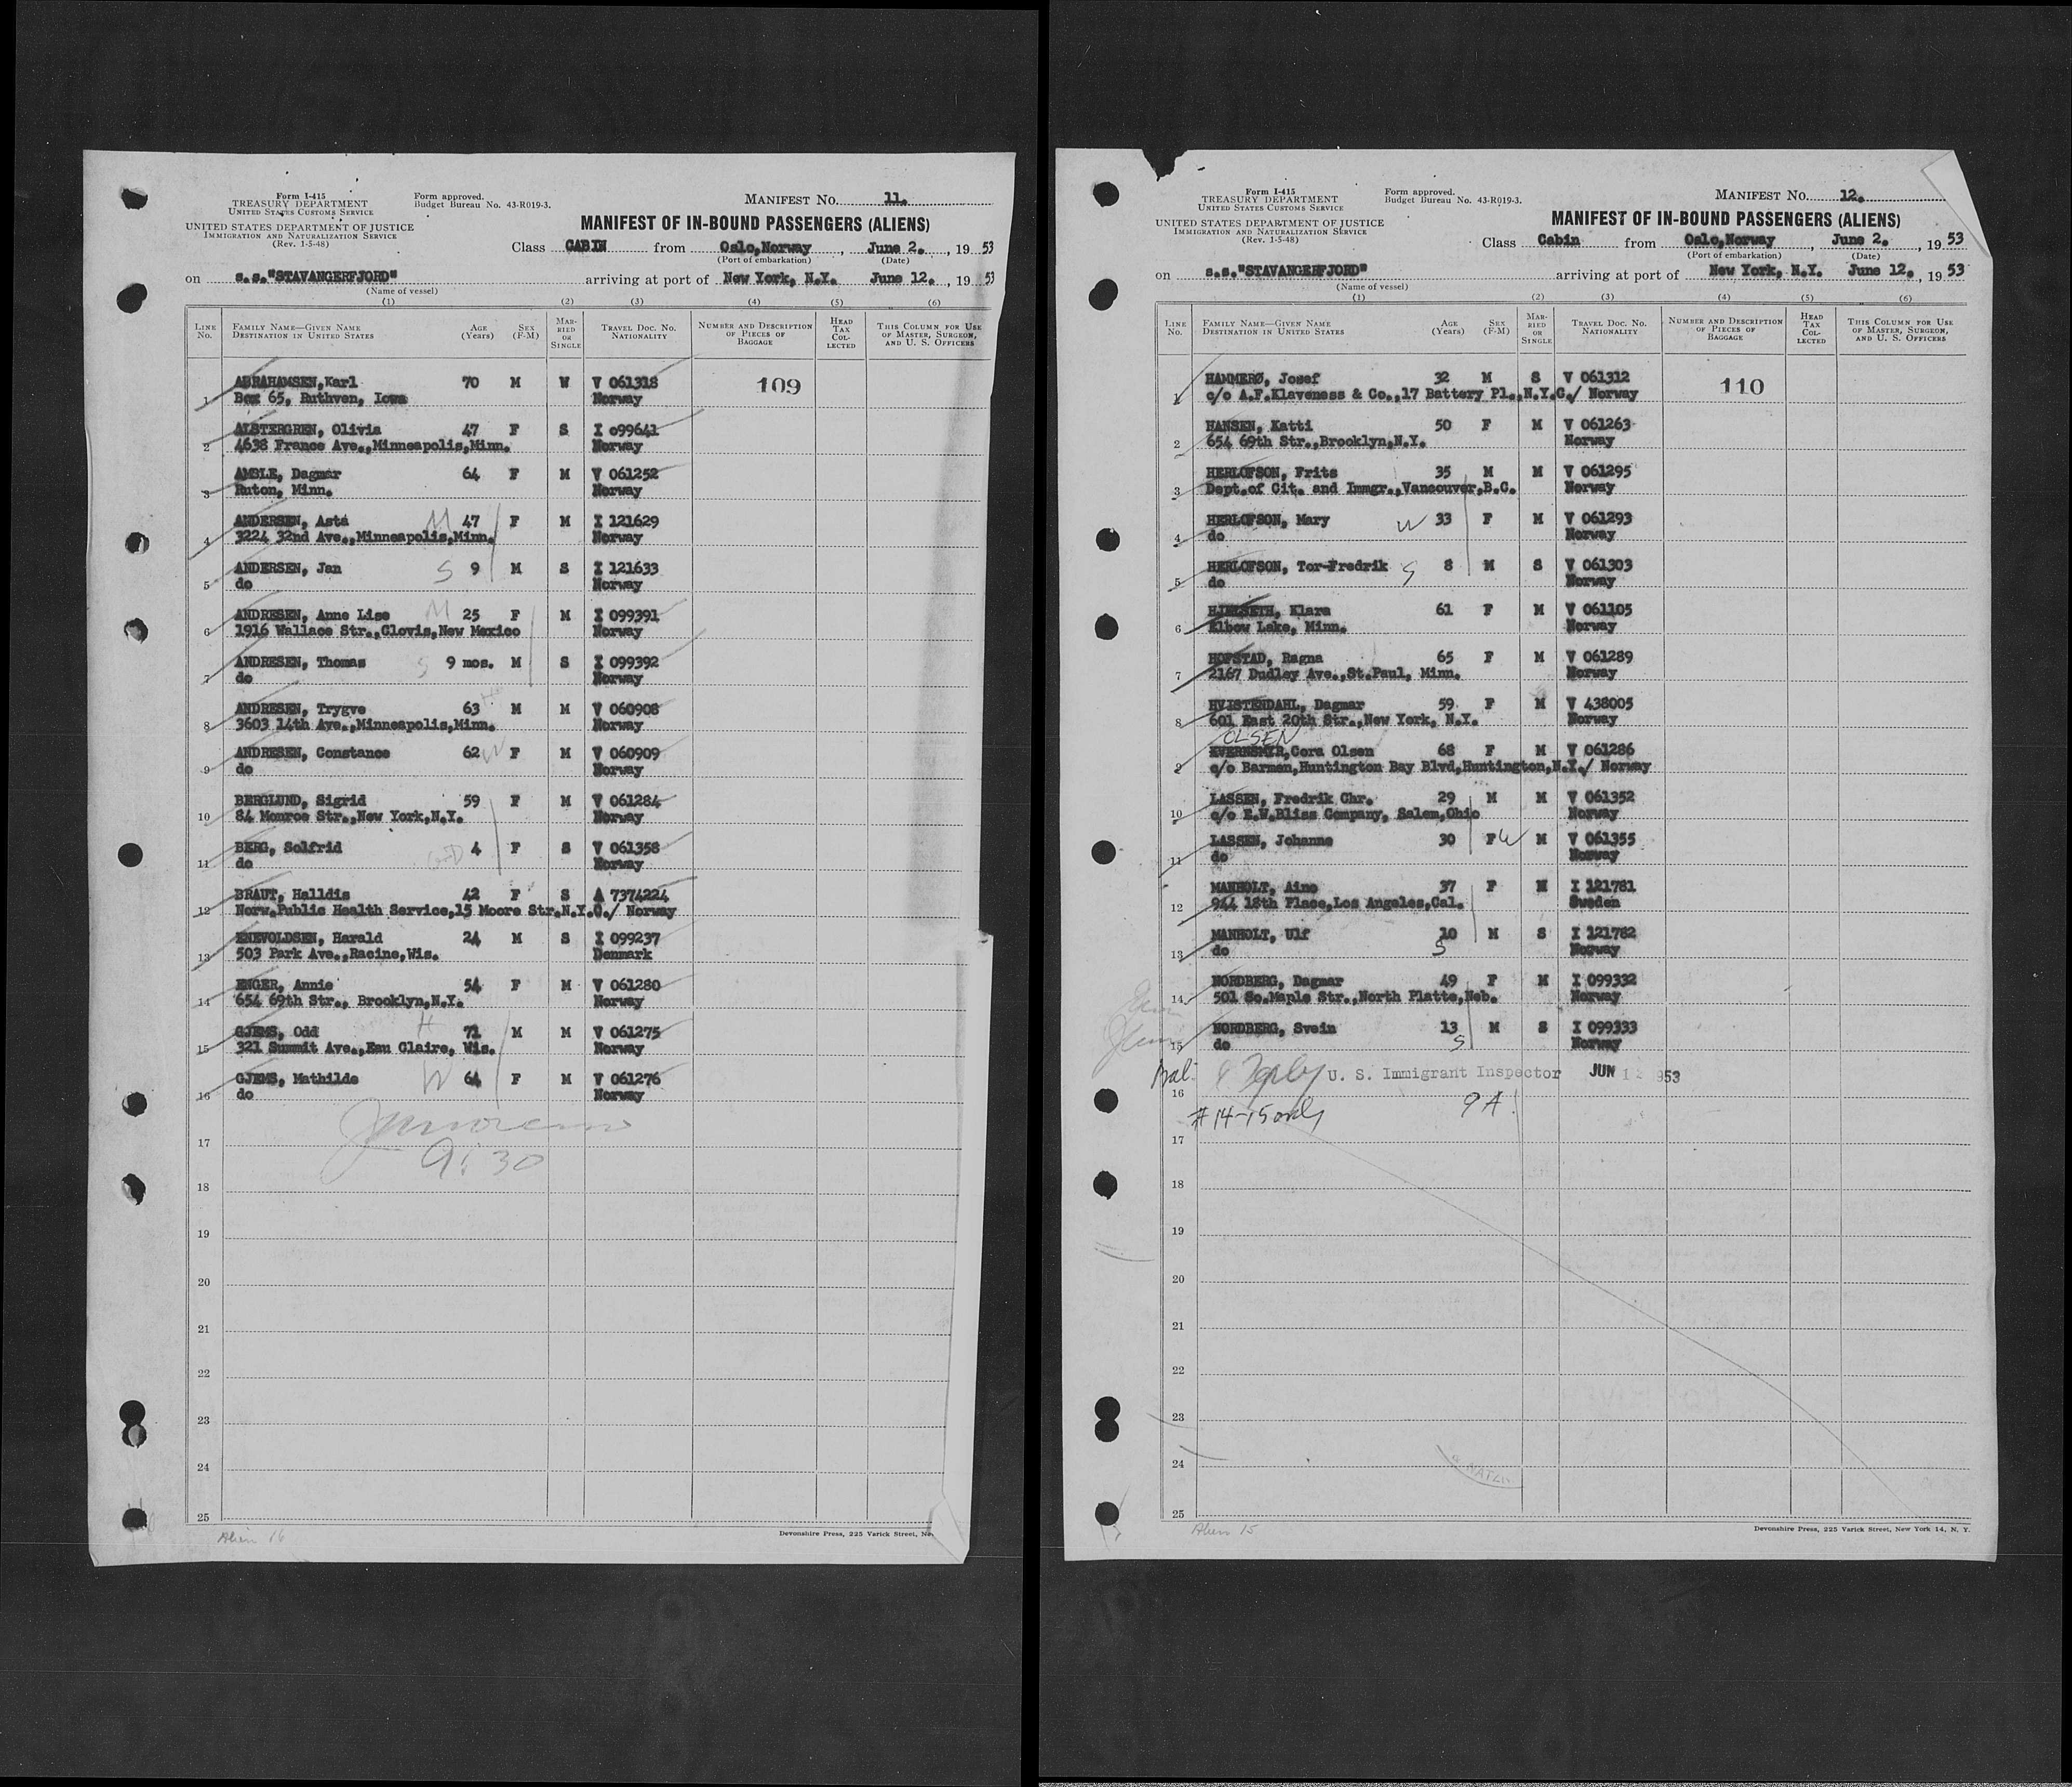 Form I-415
TREASURY DEPARTMENT
UNITED STATES CUSTOMS SERVICE
UNITED STATES DEPARTMENT OF JUSTICE
IMMIGRATION AND NATURALIZATION SERVICE
(Rev. 1-5-48)
Form approved.
Budget Bureau No. 43-R019-3.
MANIFEST No. 11.
MANIFEST OF IN-BOUND PASSENGERS (ALIENS)
Class CABIN from Oslo,Norway, June 2., 19 53
(Port of embarkation) (Date)
on s.s."STAVANGERFJORD" arriving at port of New York, N.Y. June 12., 19 53
(Name of vessel)
(1) (2) (3) (4) (5) (6)
LINE No. FAMILY NAME—GIVEN NAME DESTINATION IN UNITED STATES AGE (Years) SEX (F-M) MARRIED OR SINGLE TRAVEL DOC. No. NATIONALITY NUMBER AND DESCRIPTION OF PIECES OF BAGGAGE HEAD TAX COLLECTED THIS COLUMN FOR USE OF MASTER, SURGEON, AND U. S. OFFICERS
1 ABRAHAMSEN,Karl 70 M W V 061318 109
Box 65, Ruthven, Iowa Norway
2 ALSTERGREN, Olivia 47 F S I 099641
4638 France Ave.,Minneapolis,Minn. Norway
3 AMBLE, Dagmar 64 F M V 061252
Ruton, Minn. Norway
4 ANDERSEN, Asta M 47 F M I 121629
3224 32nd Ave.,Minneapolis,Minn. Norway
5 ANDERSEN, Jan S 9 M S I 121633
do Norway
6 ANDRESEN, Anne Lise M 25 F M I 099391
1916 Wallace Str.,Clovis,New Mexico Norway
7 ANDRESEN, Thomas S 9 mos. M S I 099392
do Norway
8 ANDRESEN, Trygve 63 M M V 060908
3603 14th Ave.,Minneapolis,Minn. Norway
9 ANDRESEN, Constance 62 W F M V 060909
do Norway
10 BERGLUND, Sigrid 59 F M V 061284
84 Monroe Str.,New York,N.Y. Norway
11 BERG, Solfrid 4 F S V 061358
do Norway
12 BRAUT, Halldis 42 F S A 7374224
Norw.Public Health Service,15 Moore Str.N.Y.C./ Norway
13 ENEVOLDSEN, Harald 24 M S I 099237
503 Park Ave.,Racine,Wis. Denmark
14 ENGER, Annie 54 F M V 061280
654 69th Str., Brooklyn,N.Y. Norway
15 GJEMS, Odd H 71 M M V 061275
321 Summit Ave.,Eau Claire, Wis. Norway
16 GJEMS, Mathilde W 64 F M V 061276
do Norway
17
9:30
18
19
20
21
22
23
24
25
Alien 16
Devonshire Press, 225 Varick Street, Ne
Form I-415
TREASURY DEPARTMENT
UNITED STATES CUSTOMS SERVICE
UNITED STATES DEPARTMENT OF JUSTICE
IMMIGRATION AND NATURALIZATION SERVICE
(Rev. 1-5-48)
Form approved.
Budget Bureau No. 43-R019-3.
MANIFEST No. 12.
MANIFEST OF IN-BOUND PASSENGERS (ALIENS)
Class Cabin from Oslo,Norway, June 2., 19 53
(Port of embarkation) (Date)
on s.s."STAVANGERFJORD" arriving at port of New York, N.Y. June 12., 19 53
(Name of vessel)
(1) (2) (3) (4) (5) (6)
LINE No. FAMILY NAME—GIVEN NAME DESTINATION IN UNITED STATES AGE (Years) SEX (F-M) MARRIED OR SINGLE TRAVEL DOC. No. NATIONALITY NUMBER AND DESCRIPTION OF PIECES OF BAGGAGE HEAD TAX COLLECTED THIS COLUMN FOR USE OF MASTER, SURGEON, AND U. S. OFFICERS
1 HAMMERØ, Josef 32 M S V 061312 110
c/o A.F.Klaveness & Co.,17 Battery Pl.,N.Y.C./ Norway
2 HANSEN, Katti 50 F M V 061263
654 69th Str.,Brooklyn,N.Y. Norway
3 HERLOFSON, Frits 35 M M V 061295
Dept.of Cit. and Immgr.,Vancouver,B.C. Norway
4 HERLOFSON, Mary W 33 F M V 061293
do Norway
5 HERLOFSON, Tor-Fredrik S 8 M S V 061303
do Norway
6 HJELSETH, Klara 61 F M V 061105
Elbow Lake, Minn. Norway
7 HOFSTAD, Ragna 65 F M V 061289
2167 Dudley Ave.,St.Paul, Minn. Norway
8 HVISTENDAHL, Dagmar 59 F M V 438005
601 East 20th Str.,New York, N.Y. Norway
OLSEN
9 KVERNSMYR,Cora Olsen 68 F M V 061286
c/o Barmen,Huntington Bay Blvd,Huntington,N.Y./ Norway
10 LASSEN, Fredrik Chr. 29 M M V 061352
c/o E.W.Bliss Company, Salem,Ohio Norway
11 LASSEN, Johanne 30 F W M V 061355
do Norway
12 MANHOLT, Aino 37 F M I 121781
944 18th Place,Los Angeles,Cal. Sweden
13 MANHOLT, Ulf 10 M S I 121782
do S Norway
14 NORDBERG, Dagmar 49 F M I 099332
501 So.Maple Str.,North Platte,Neb. Norway
15 NORDBERG, Svein 13 M S I 099333
do S Norway
U. S. Immigrant Inspector JUN 12 1953
16
#14-15 only 9A
17
18
19
20
21
22
23
24
25
Alien 15
Devonshire Press, 225 Varick Street, New York 14, N. Y.